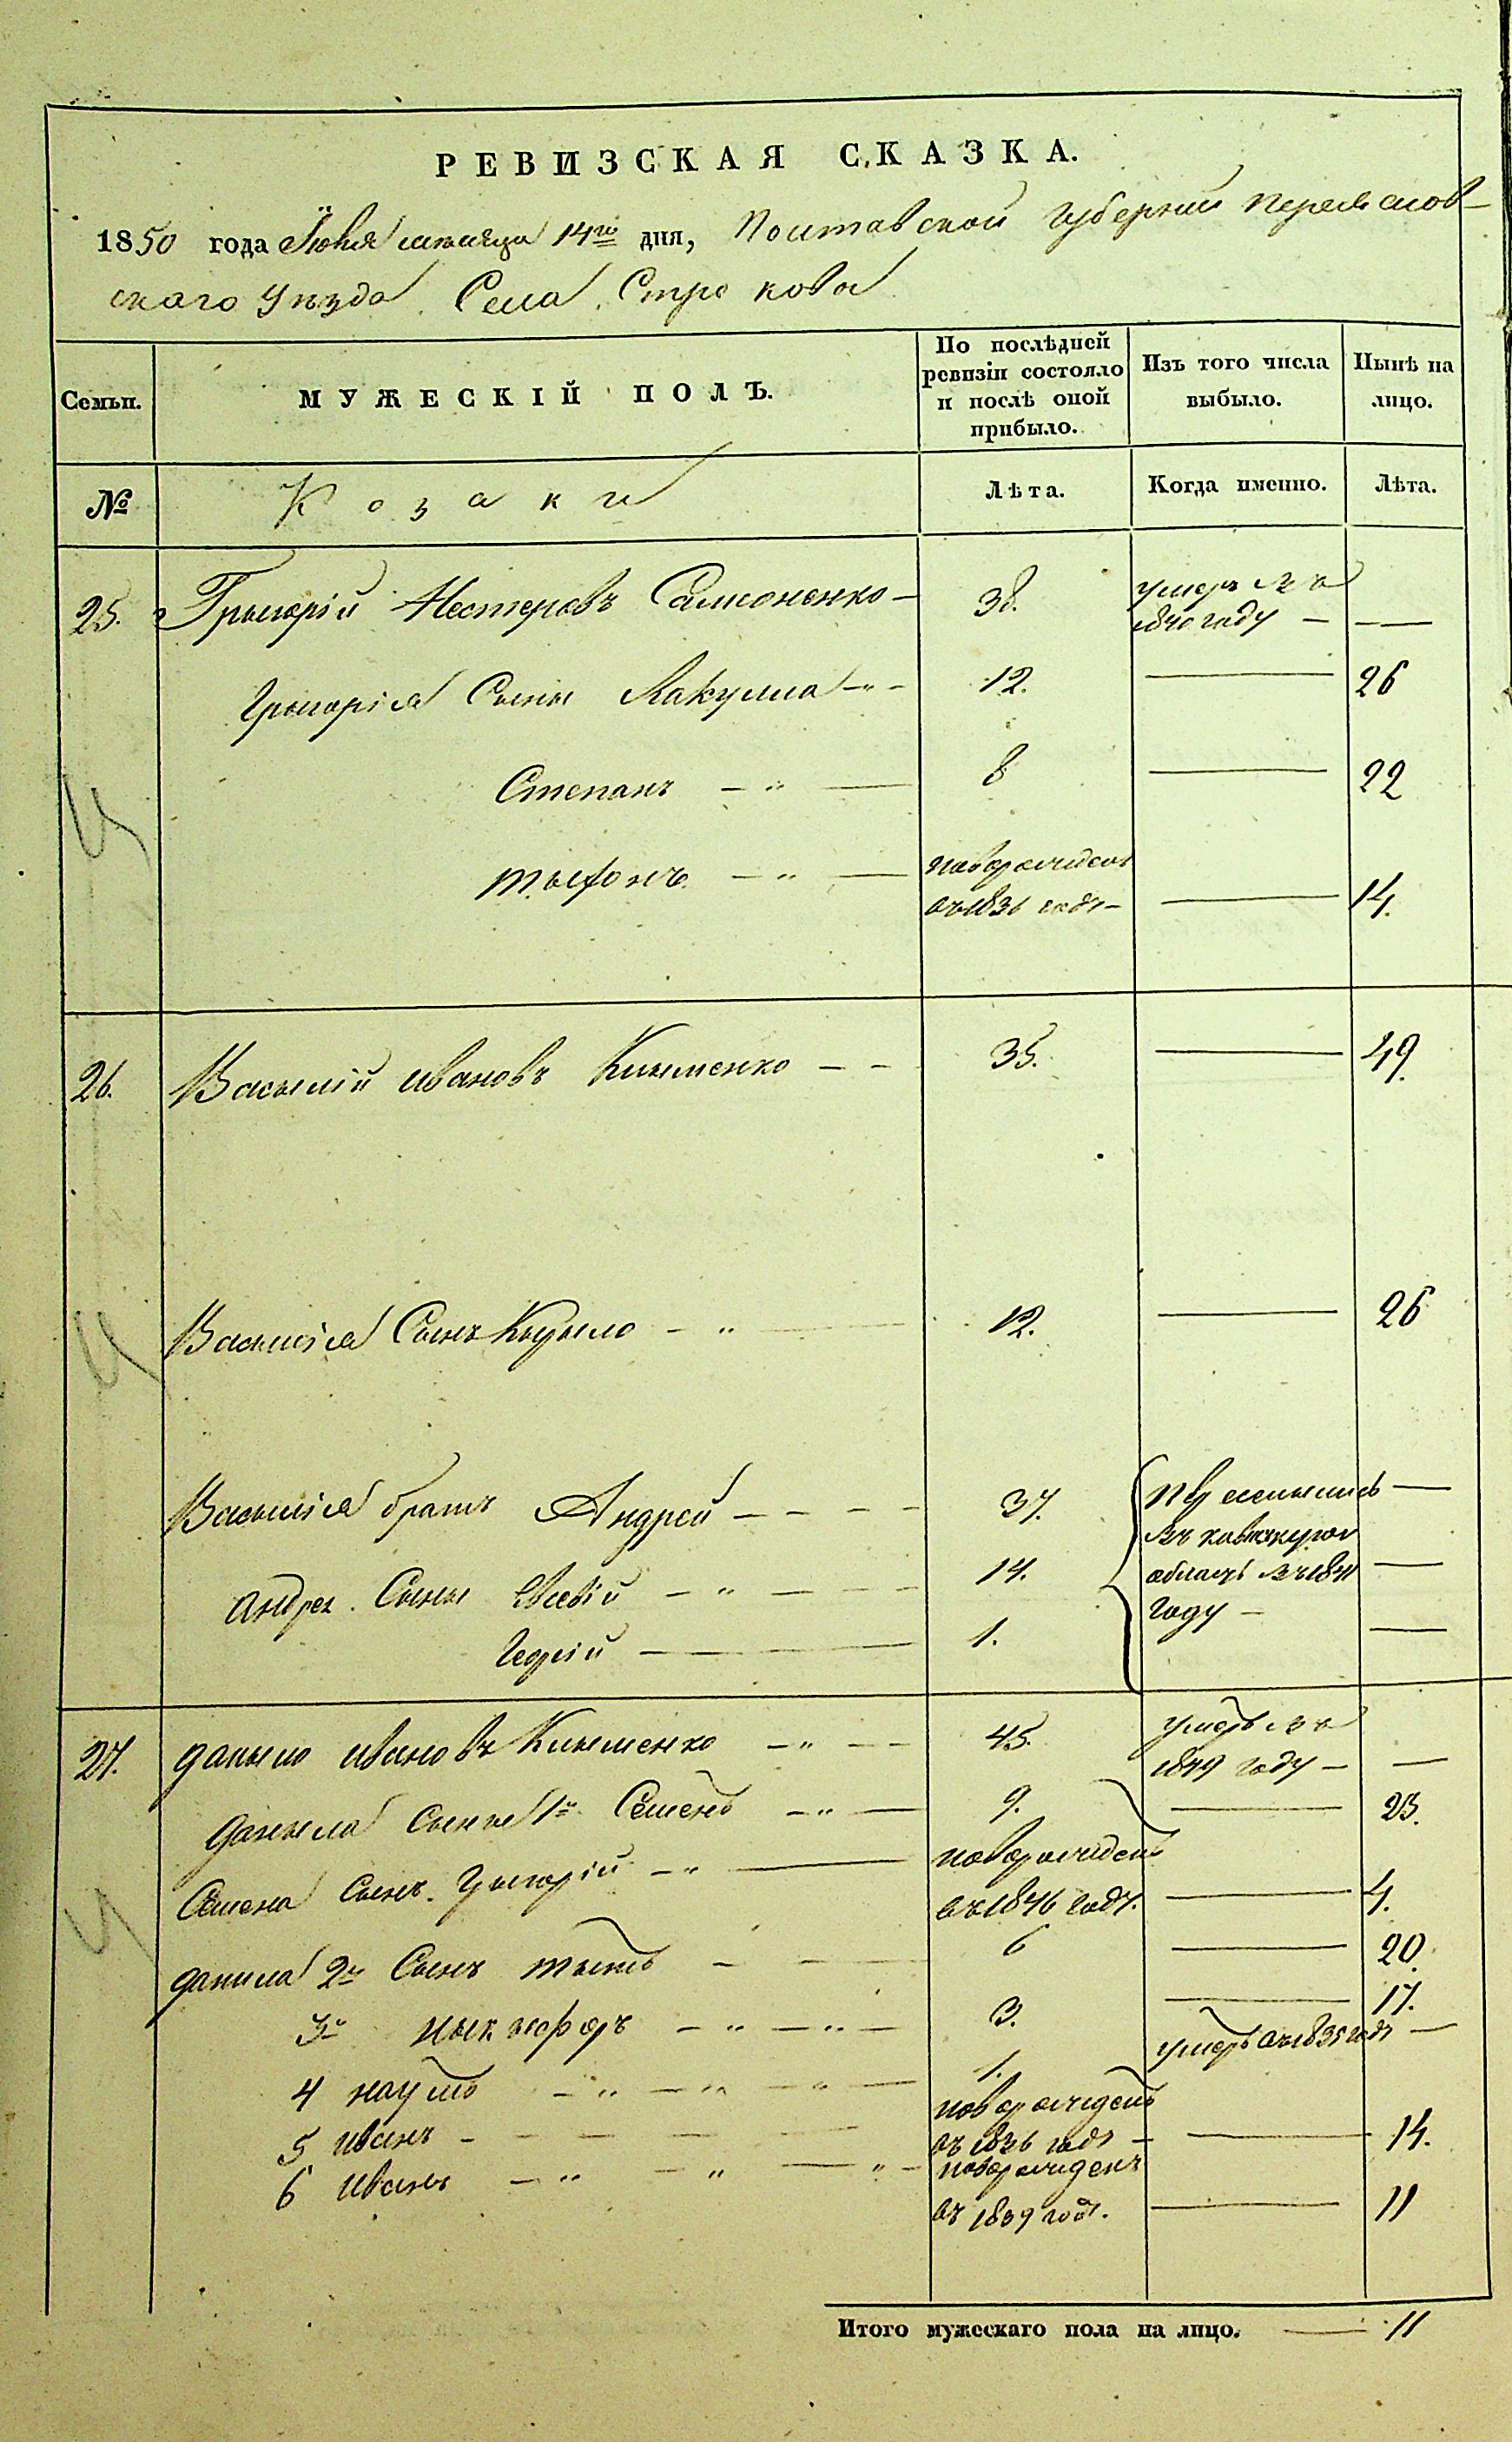 РЕВИЗСКАЯ СКАЗКА.
1850 года Іюня мѣсяца 14го дня, Полтавской Губерніи Переяслов-
скаго Уѣзда Села Строкова
Семьи. МУЖЕСКІЙ ПОЛЪ. По послѣдней ревизіи состояло и послѣ оной прибыло. Изъ того числа выбыло. Нынѣ на лицо.
№ Козаки Лѣта. Когда именно. Лѣта.
25. Грыгорій Нестеровъ Самоненко — 38. умеръ въ
1840 году — —
Грыгорія Сыны Вакула — 12. — 26
Степанъ — 8 — 22
Тыхонъ — новорожденъ
въ 1836 году — — 14.
26. Васылій Ивановъ Клыменко — 35. — 49.
Васылія Сынъ Кырыло — 12. — 26
Васылія братъ Андрей — 37. Переселылись —
въ
Андрея Сыны Евсевій — 14. область въ 1841 —
году —
Георгій — 1. —
27. Даныло Ивановъ Клыменко — 45. умеръ въ
1849 году — —
Даныла Сынъ 1й Семенъ — 9. — 23.
Семена Сынъ Грыгорій — новорожденъ
въ 1846 году. — 4.
Данила 2й Сынъ Тытъ — 6 — 20.
3й Ныкыфоръ — 3. — 17.
4 Наумъ — 1. умеръ въ 1835 году —
5 Иванъ — новорожденъ
въ 1836 году — — 14.
6 Иванъ — новорожденъ
въ 1839 году. — 11
Итого мужескаго пола на лицо. — 11